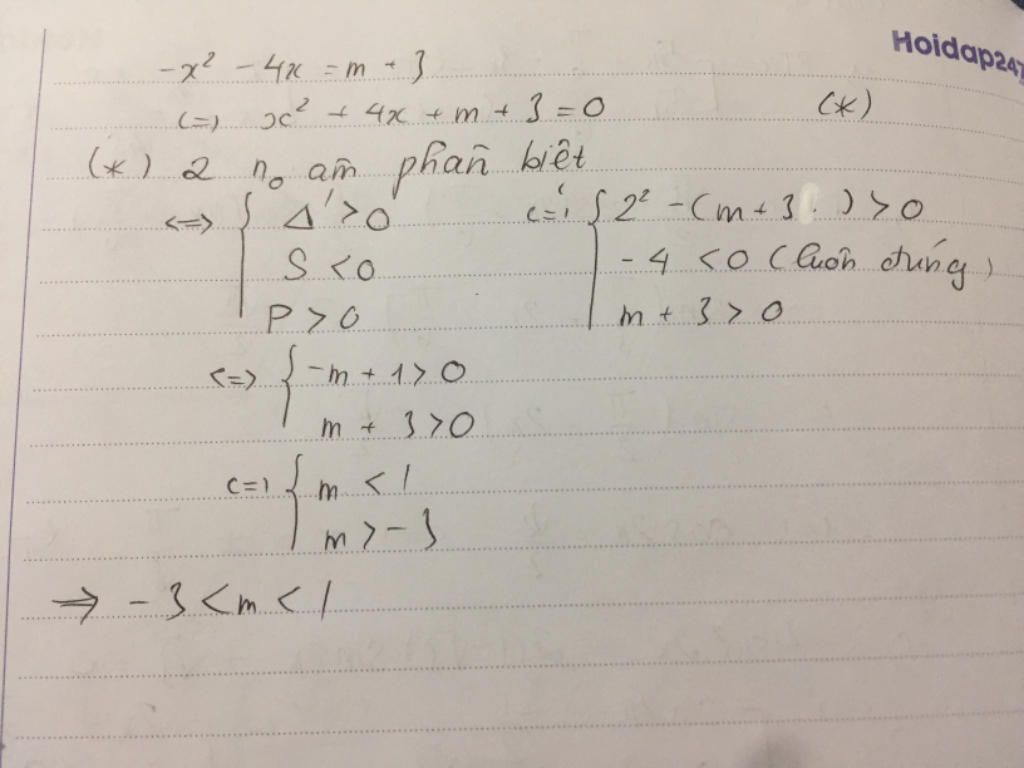 Hoidap247
-x² - 4x = m + 3
<=> x² + 4x + m + 3 = 0 (*)
(*) 2 n₀ âm phân biệt
<=> { Δ' > 0 <=> { 2² - (m + 3 ) > 0
S < 0 -4 < 0 (luôn đúng)
P > 0 m + 3 > 0
<=> { -m + 1 > 0
m + 3 > 0
<=> { m < 1
m > -3
=> -3 < m < 1